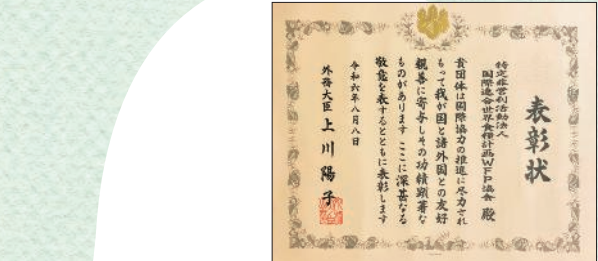 表彰状
特定非営利活動法人
国際連合世界食糧計画WFP協会 殿
貴団体は国際協力の推進に尽力され
もって我が国と諸外国との友好
親善に寄与しその功績顕著な
ものがあります ここに深甚なる
敬意を表するとともに表彰します
令和六年八月八日
外務大臣 上川陽子